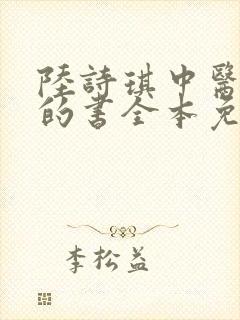 陸詩琪中醫
的書全本免
李松益